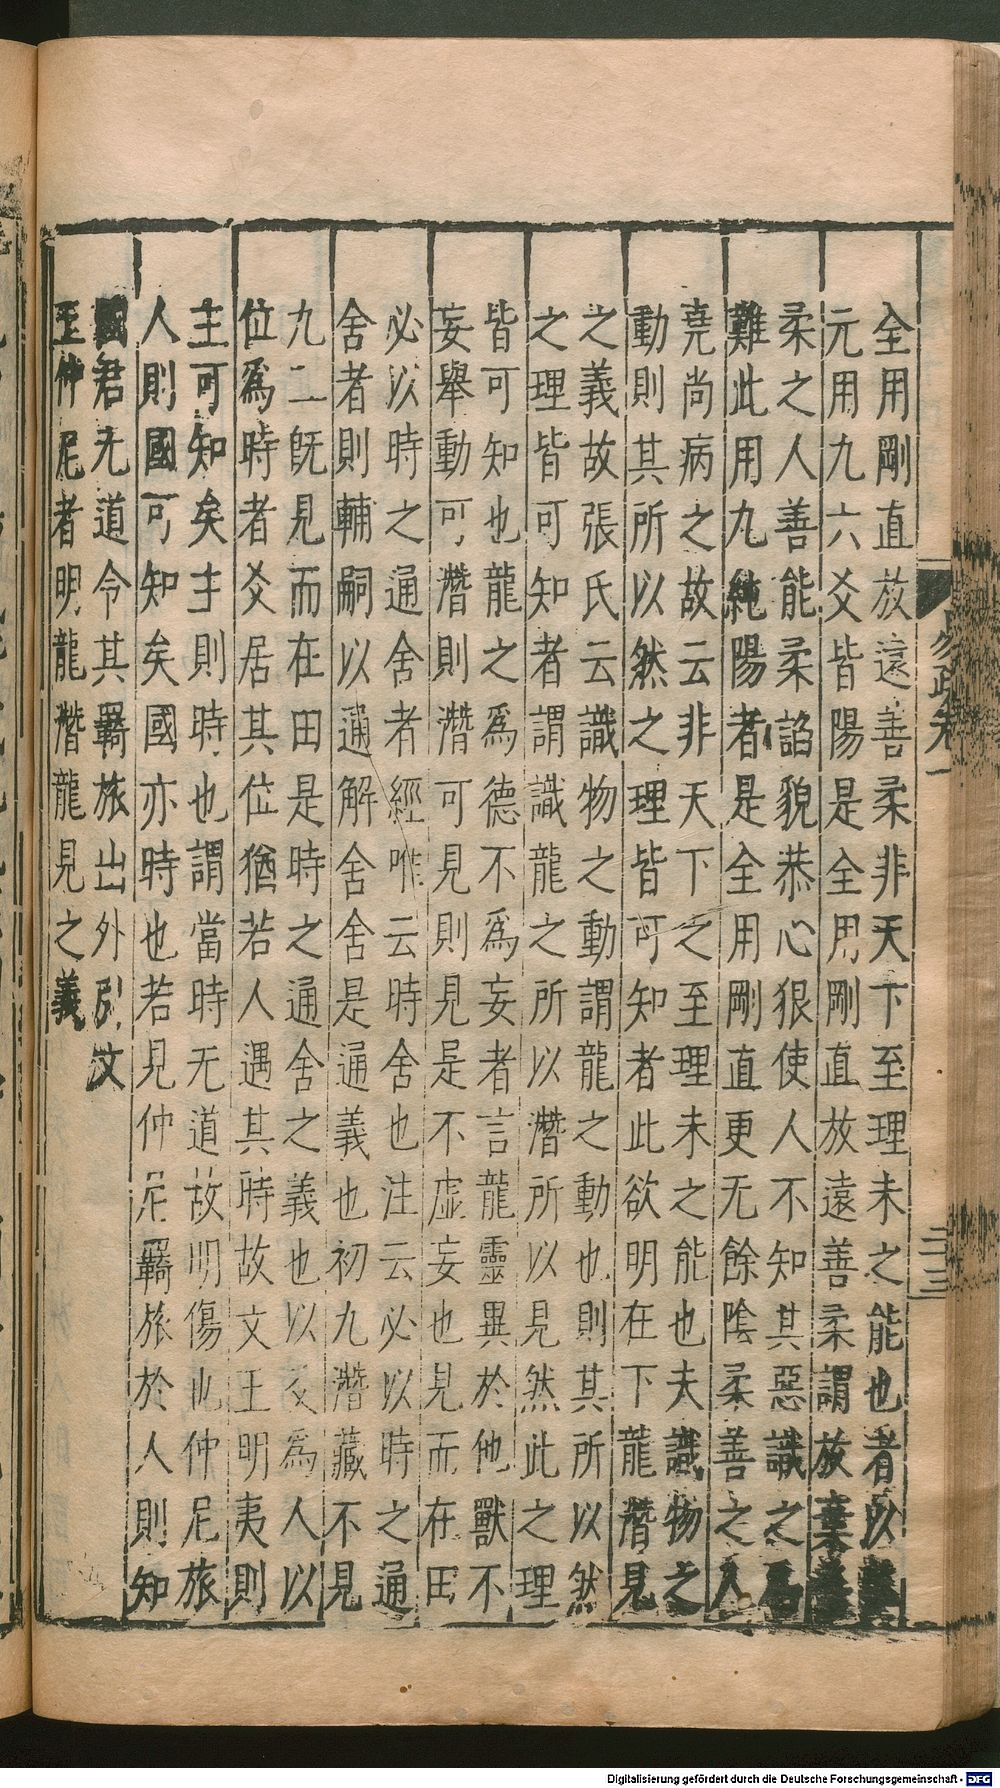 易疏卷一
二三
全用剛直放遠善柔非天下至理未之能也者以乾
元用九六爻皆陽是全用剛直放遠善柔謂放棄善
柔之人善能柔諂貌恭心狠使人不知其惡識之爲
難此用九純陽者是全用剛直更无餘陰柔善之人
堯尚病之故云非天下之至理未之能也夫識物之
動則其所以然之理皆可知者此欲明在下龍潛見
之義故張氏云識物之動謂龍之動也則其所以然
之理皆可知者謂識龍之所以潛所以見然此之理
皆可知也龍之爲德不爲妄者言龍靈異於他獸不
妄舉動可潛則潛可見則見是不虛妄也見而在田
必以時之通舍者經唯云時舍也注云必以時之通
舍者則輔嗣以通解舍舍是通義也初九潛藏不見
九二旣見而在田是時之通舍之義也以爻爲人以
位爲時者爻居其位猶若人遇其時故文王明夷則
主可知矣主則時也謂當時无道故明傷也仲尼旅
人則國可知矣國亦時也若見仲尼羈旅於人則知
國君无道令其羈旅出外引文
王仲尼者明龍潛龍見之義
Digitalisierung gefördert durch die Deutsche Forschungsgemeinschaft - DFG